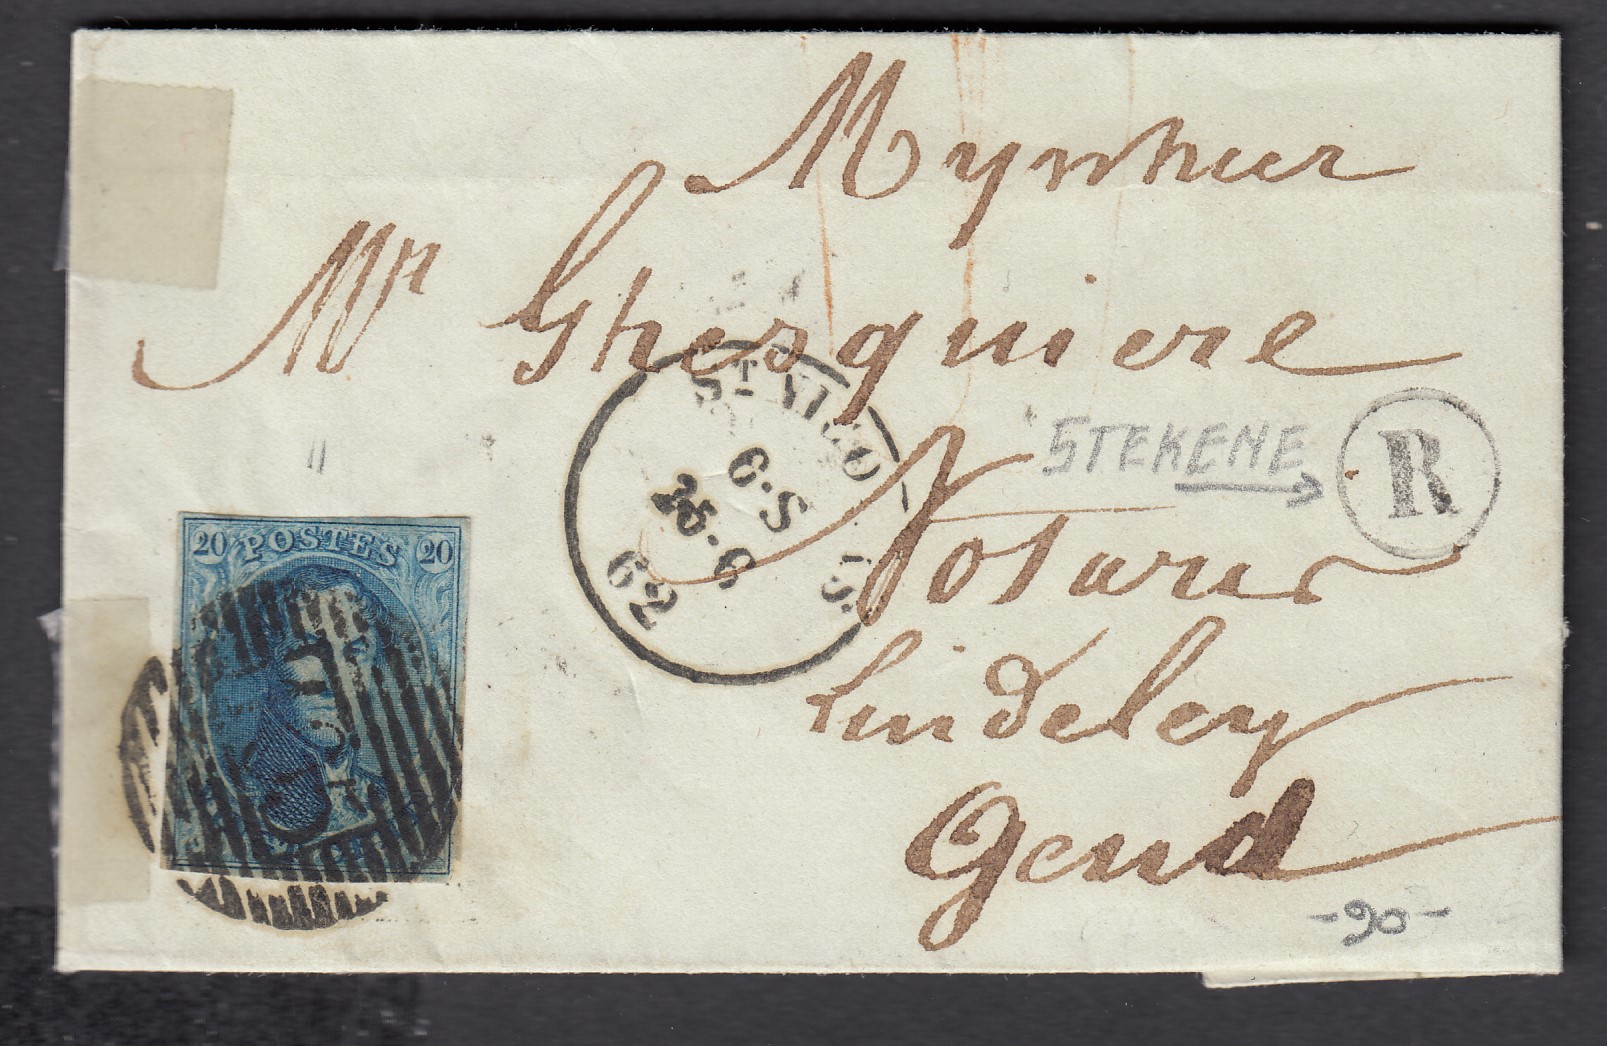 Mynheer
Mr Ghesquiere
ST NICO
6·S
25·6
62
S.
STEKENE
R
Notaris
Lindeley
Gend
-90-
20 POSTES 20